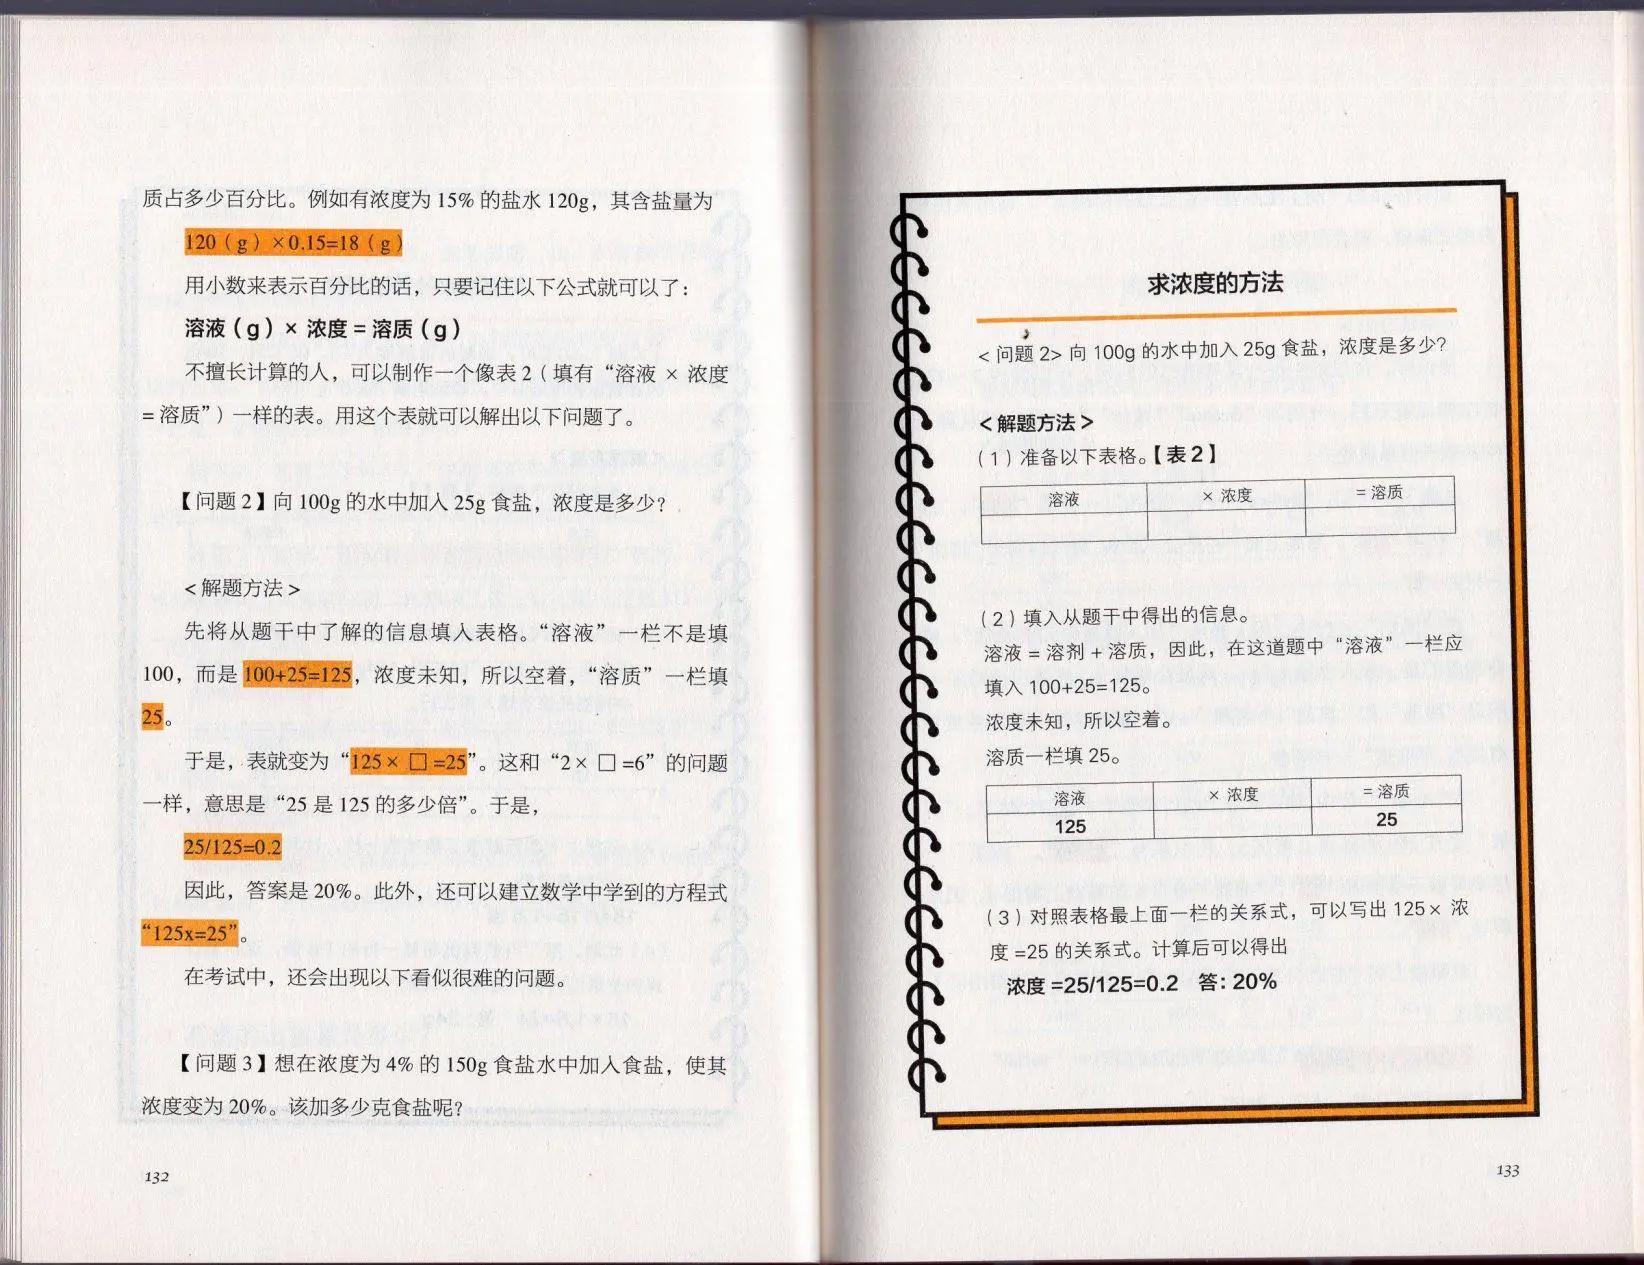 质占多少百分比。例如有浓度为 15% 的盐水 120g，其含盐量为
120（g）×0.15=18（g）
用小数来表示百分比的话，只要记住以下公式就可以了：
溶液（g）× 浓度 = 溶质（g）
不擅长计算的人，可以制作一个像表 2（填有“溶液 × 浓度
= 溶质”）一样的表。用这个表就可以解出以下问题了。
【问题 2】向 100g 的水中加入 25g 食盐，浓度是多少？
< 解题方法 >
先将从题干中了解的信息填入表格。“溶液”一栏不是填
100，而是 100+25=125，浓度未知，所以空着，“溶质”一栏填
25。
于是，表就变为“125× □ =25”。这和“2× □ =6”的问题
一样，意思是“25 是 125 的多少倍”。于是，
25/125=0.2
因此，答案是 20%。此外，还可以建立数学中学到的方程式
“125x=25”。
在考试中，还会出现以下看似很难的问题。
【问题 3】想在浓度为 4% 的 150g 食盐水中加入食盐，使其
浓度变为 20%。该加多少克食盐呢？
132
求浓度的方法
< 问题 2> 向 100g 的水中加入 25g 食盐，浓度是多少？
< 解题方法 >
（1）准备以下表格。【表 2】
溶液 × 浓度 = 溶质
（2）填入从题干中得出的信息。
溶液 = 溶剂 + 溶质，因此，在这道题中“溶液”一栏应
填入 100+25=125。
浓度未知，所以空着。
溶质一栏填 25。
溶液 × 浓度 = 溶质
125 25
（3）对照表格最上面一栏的关系式，可以写出 125× 浓
度 =25 的关系式。计算后可以得出
浓度 =25/125=0.2 答：20%
133